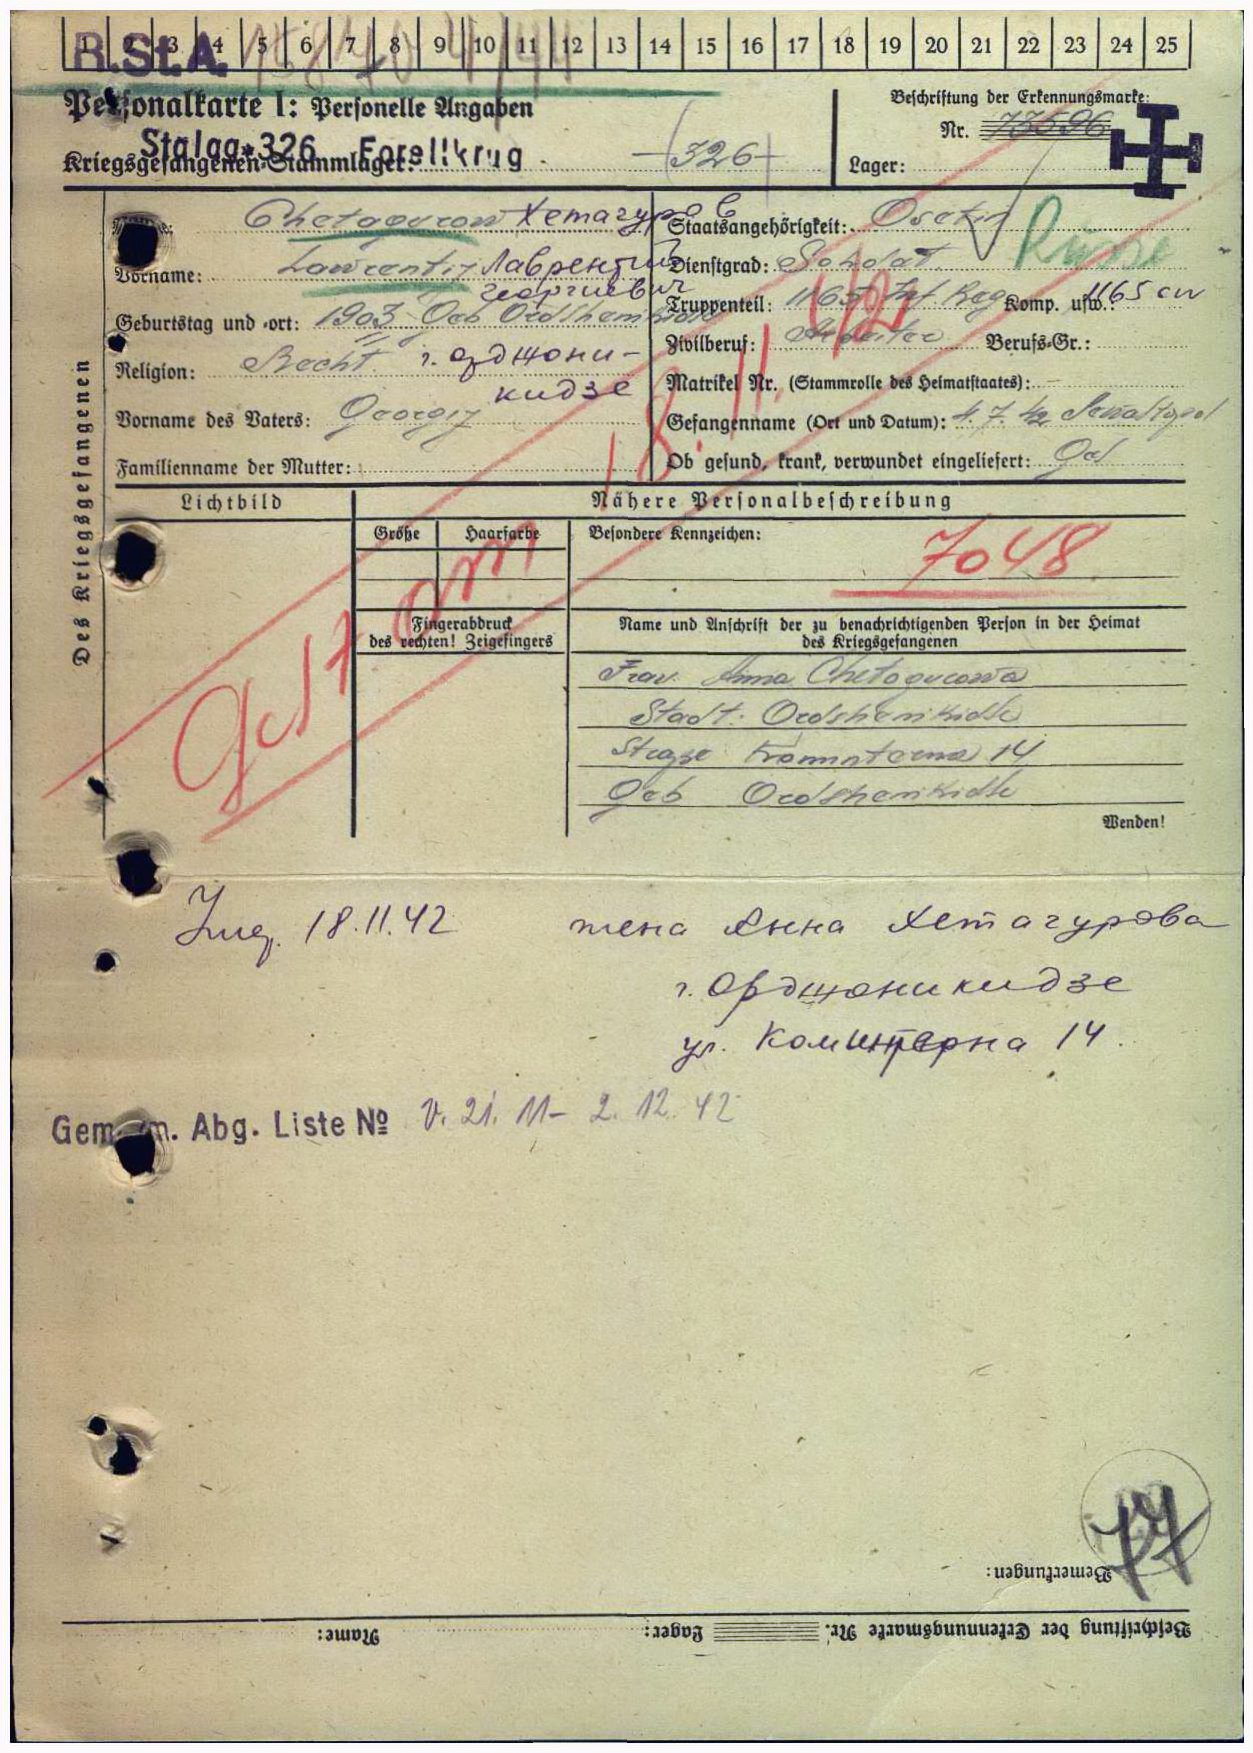 1 2 3 4 5 6 7 8 9 10 11 12 13 14 15 16 17 18 19 20 21 22 23 24 25
R.St.A.
Personalkarte I: Personelle Angaben
Beschriftung der Erkennungsmarke:
Nr. 73596
Stalag 326 Forellkrug
Kriegsgefangenen-Stammlager: 326
Lager:
Des Kriegsgefangenen
Chetagurow Хетагуров
Vorname: Lawrentij Лаврентий
Георгиевич
Geburtstag und -ort: 1903 Geb Ordshenikidse
Religion: г. Орджони-
кидзе
Vorname des Vaters: Georgij
Familienname der Mutter:
Staatsangehörigkeit: Osetin Russe
Dienstgrad: Soldat
Truppenteil: 1165 Inf Reg Komp. usw.: 1165 сп
Zivilberuf: Arbeiter Berufs-Gr.:
Matrikel Nr. (Stammrolle des Heimatstaates): -
Gefangennahme (Ort und Datum): 4.7.42 Sewastopol
Ob gesund, krank, verwundet eingeliefert: Ges
Lichtbild
Nähere Personalbeschreibung
Größe Haarfarbe
Besondere Kennzeichen:
7048
Gest am 18.11.42
Fingerabdruck
des rechten! Zeigefingers
Name und Anschrift der zu benachrichtigenden Person in der Heimat
des Kriegsgefangenen
Frau Anna Chetagurowa
Stadt. Ordshenikidse
Strasse Kominterna 14
Geb Ordshenikidse
Wenden!
18.11.42
жена Анна Хетагурова
г. Орджоникидзе
ул. Коминтерна 14.
Gem. Abg. Liste № v. 21.11 - 2.12.42
77
Bemerkungen:
Beschriftung der Erkennungsmarke Nr. Lager: Name: